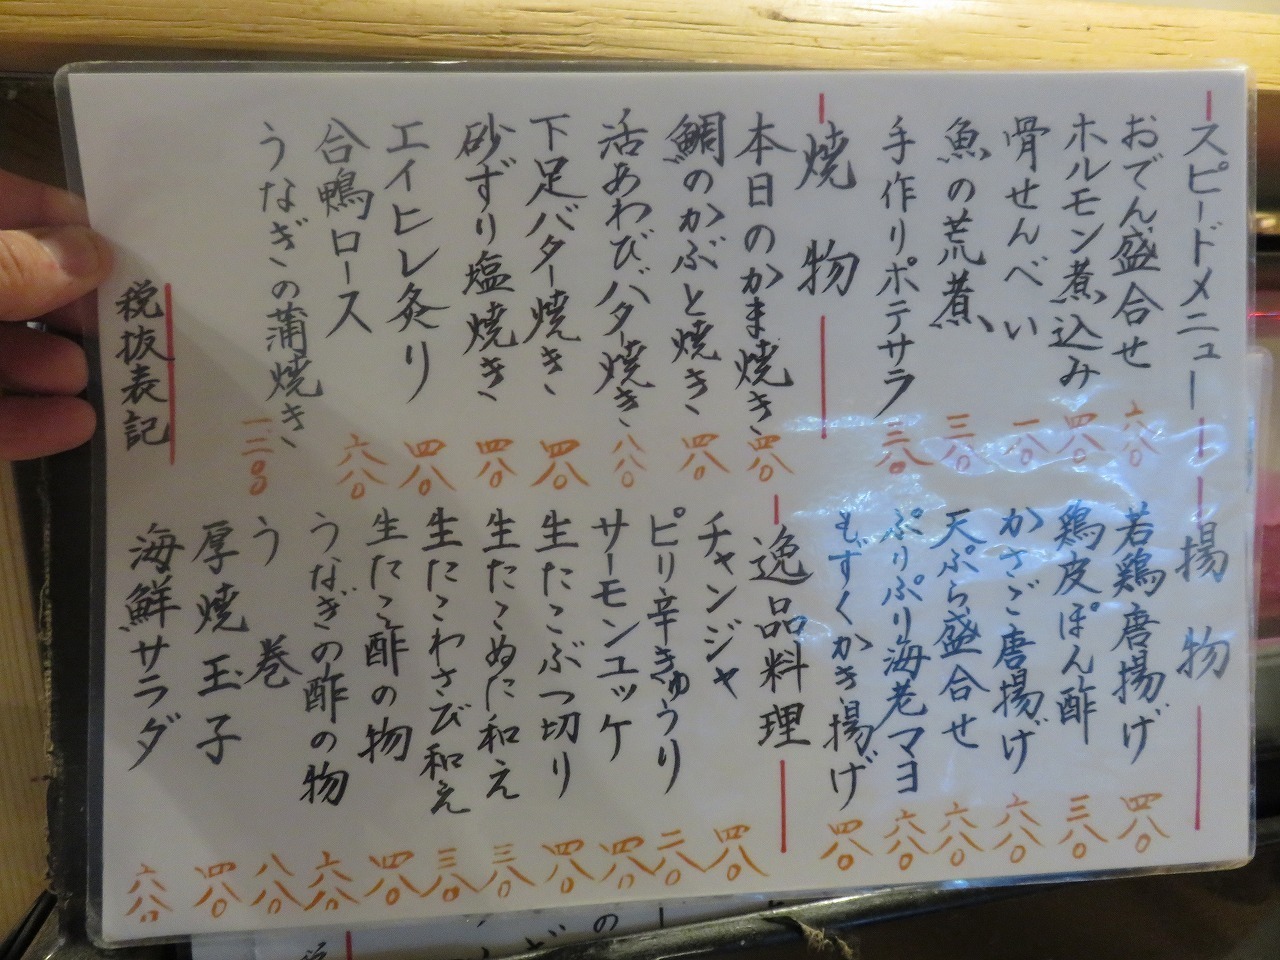 スピードメニュー
おでん盛合せ 六八〇
ホルモン煮込み 四八〇
骨せんべい 一八〇
魚の荒煮 三八〇
手作りポテサラ 三八〇
焼物
本日のかま焼き 四八〇
鯛のかぶと焼き 四八〇
活あわびバター焼き 八八〇
下足バター焼き 四八〇
砂ずり塩焼き 四八〇
エイヒレ炙り 四八〇
合鴨ロース 六八〇
うなぎの蒲焼き
税抜表記
揚物
若鶏唐揚げ 四八〇
鶏皮ぽん酢 三八〇
かさご唐揚げ 六八〇
天ぷら盛合せ 六八〇
ぷりぷり海老マヨ 六八〇
もずくかき揚げ 四八〇
逸品料理
チャンジャ 四八〇
ピリ辛きゅうり 二八〇
サーモンユッケ 四八〇
生たこぶつ切り 四八〇
生たこぬた和え 三八〇
生たこわさび和え 三八〇
生たこ酢の物 四八〇
うなぎの酢の物 六八〇
う巻 八八〇
厚焼玉子 四八〇
海鮮サラダ 六八〇